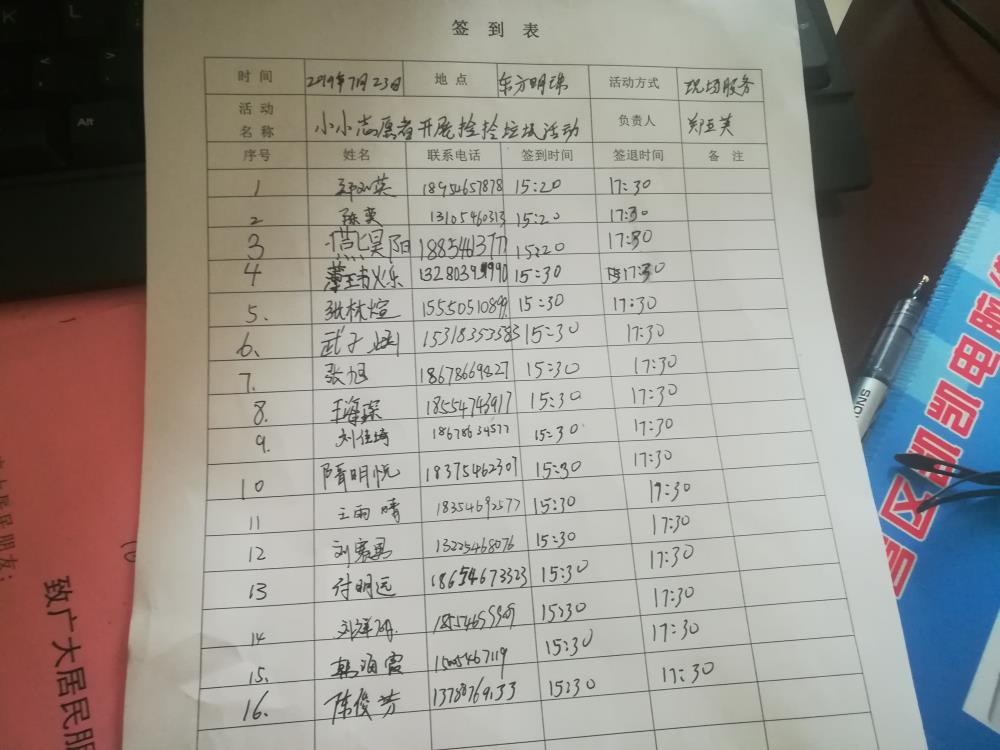 签到表
时间 2019年7月23日 地点 东方明珠 活动方式 现场服务
活动名称 小小志愿者开展捡拾垃圾活动 负责人 郑亚英
序号 姓名 联系电话 签到时间 签退时间 备注
1 18954657878 15:20 17:30
2 陈英 13105460313 15:20 17:30
3 昊阳 15:20 17:30
4 15:30 17:30
5. 张林煊 15:30 17:30
6. 武子涵 15318353583 15:30 17:30
7. 张旭 15:30 17:30
8. 王海霖 18554743917 15:30 17:30
9. 刘佳琦 18678634577 15:30 17:30
10 隋明悦 18375462307 15:30 17:30
11 王雨晴 18354692577 15:30 19:30
12 13225468076 15:30 17:30
13 付明远 18654673323 15:30 17:30
14 15:30 17:30
15. 韩海霞 15:30 17:30
16. 陈俊芳 15:30 17:30
致广大居民服
居民朋友:
Alt
K
L
IONS
区凯电脑